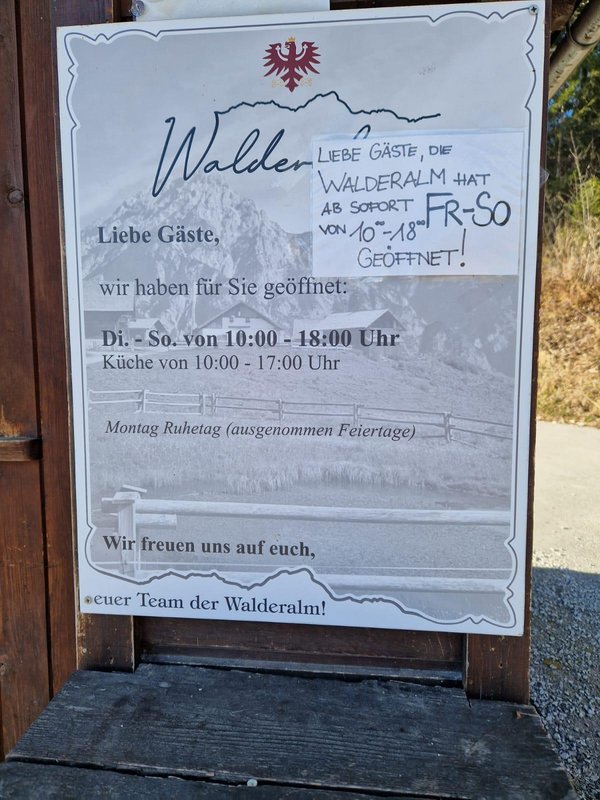 Walderalm
LIEBE GÄSTE, DIE
WALDERALM HAT
AB SOFORT FR-SO
VON 10⁰⁰-18⁰⁰
GEÖFFNET!
Liebe Gäste,
wir haben für Sie geöffnet:
Di. - So. von 10:00 - 18:00 Uhr
Küche von 10:00 - 17:00 Uhr
Montag Ruhetag (ausgenommen Feiertage)
Wir freuen uns auf euch,
euer Team der Walderalm!